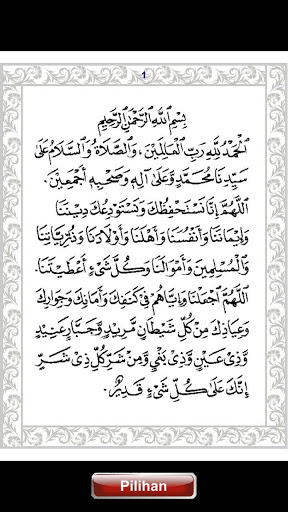 1
بِسْمِ ٱللَّهِ ٱلرَّحْمَٰنِ ٱلرَّحِيمِ
ٱلْحَمْدُ لِلَّهِ رَبِّ ٱلْعَالَمِينَ، وَٱلصَّلَاةُ وَٱلسَّلَامُ عَلَىٰ
سَيِّدِنَا مُحَمَّدٍ وَعَلَىٰ آلِهِ وَصَحْبِهِ أَجْمَعِينَ.
ٱللَّهُمَّ إِنَّا نَسْتَحْفِظُكَ وَنَسْتَوْدِعُكَ دِينَنَا
وَإِيمَانَنَا وَأَنْفُسَنَا وَأَهْلَنَا وَأَوْلَادَنَا وَذُرِّيَّاتِنَا
وَٱلْمُسْلِمِينَ وَأَمْوَالَنَا وَكُلَّ شَيْءٍ أَعْطَيْتَنَا.
ٱللَّهُمَّ ٱجْعَلْنَا وَإِيَّاهُمْ فِي كَنَفِكَ وَأَمَانِكَ وَجِوَارِكَ
وَعِيَاذِكَ مِنْ كُلِّ شَيْطَانٍ مَرِيدٍ وَجَبَّارٍ عَنِيدٍ
وَذِي عَيْنٍ وَذِي بَغْيٍ وَمِنْ شَرِّ كُلِّ ذِي شَرٍّ
إِنَّكَ عَلَىٰ كُلِّ شَيْءٍ قَدِيرٌ.
Pilihan